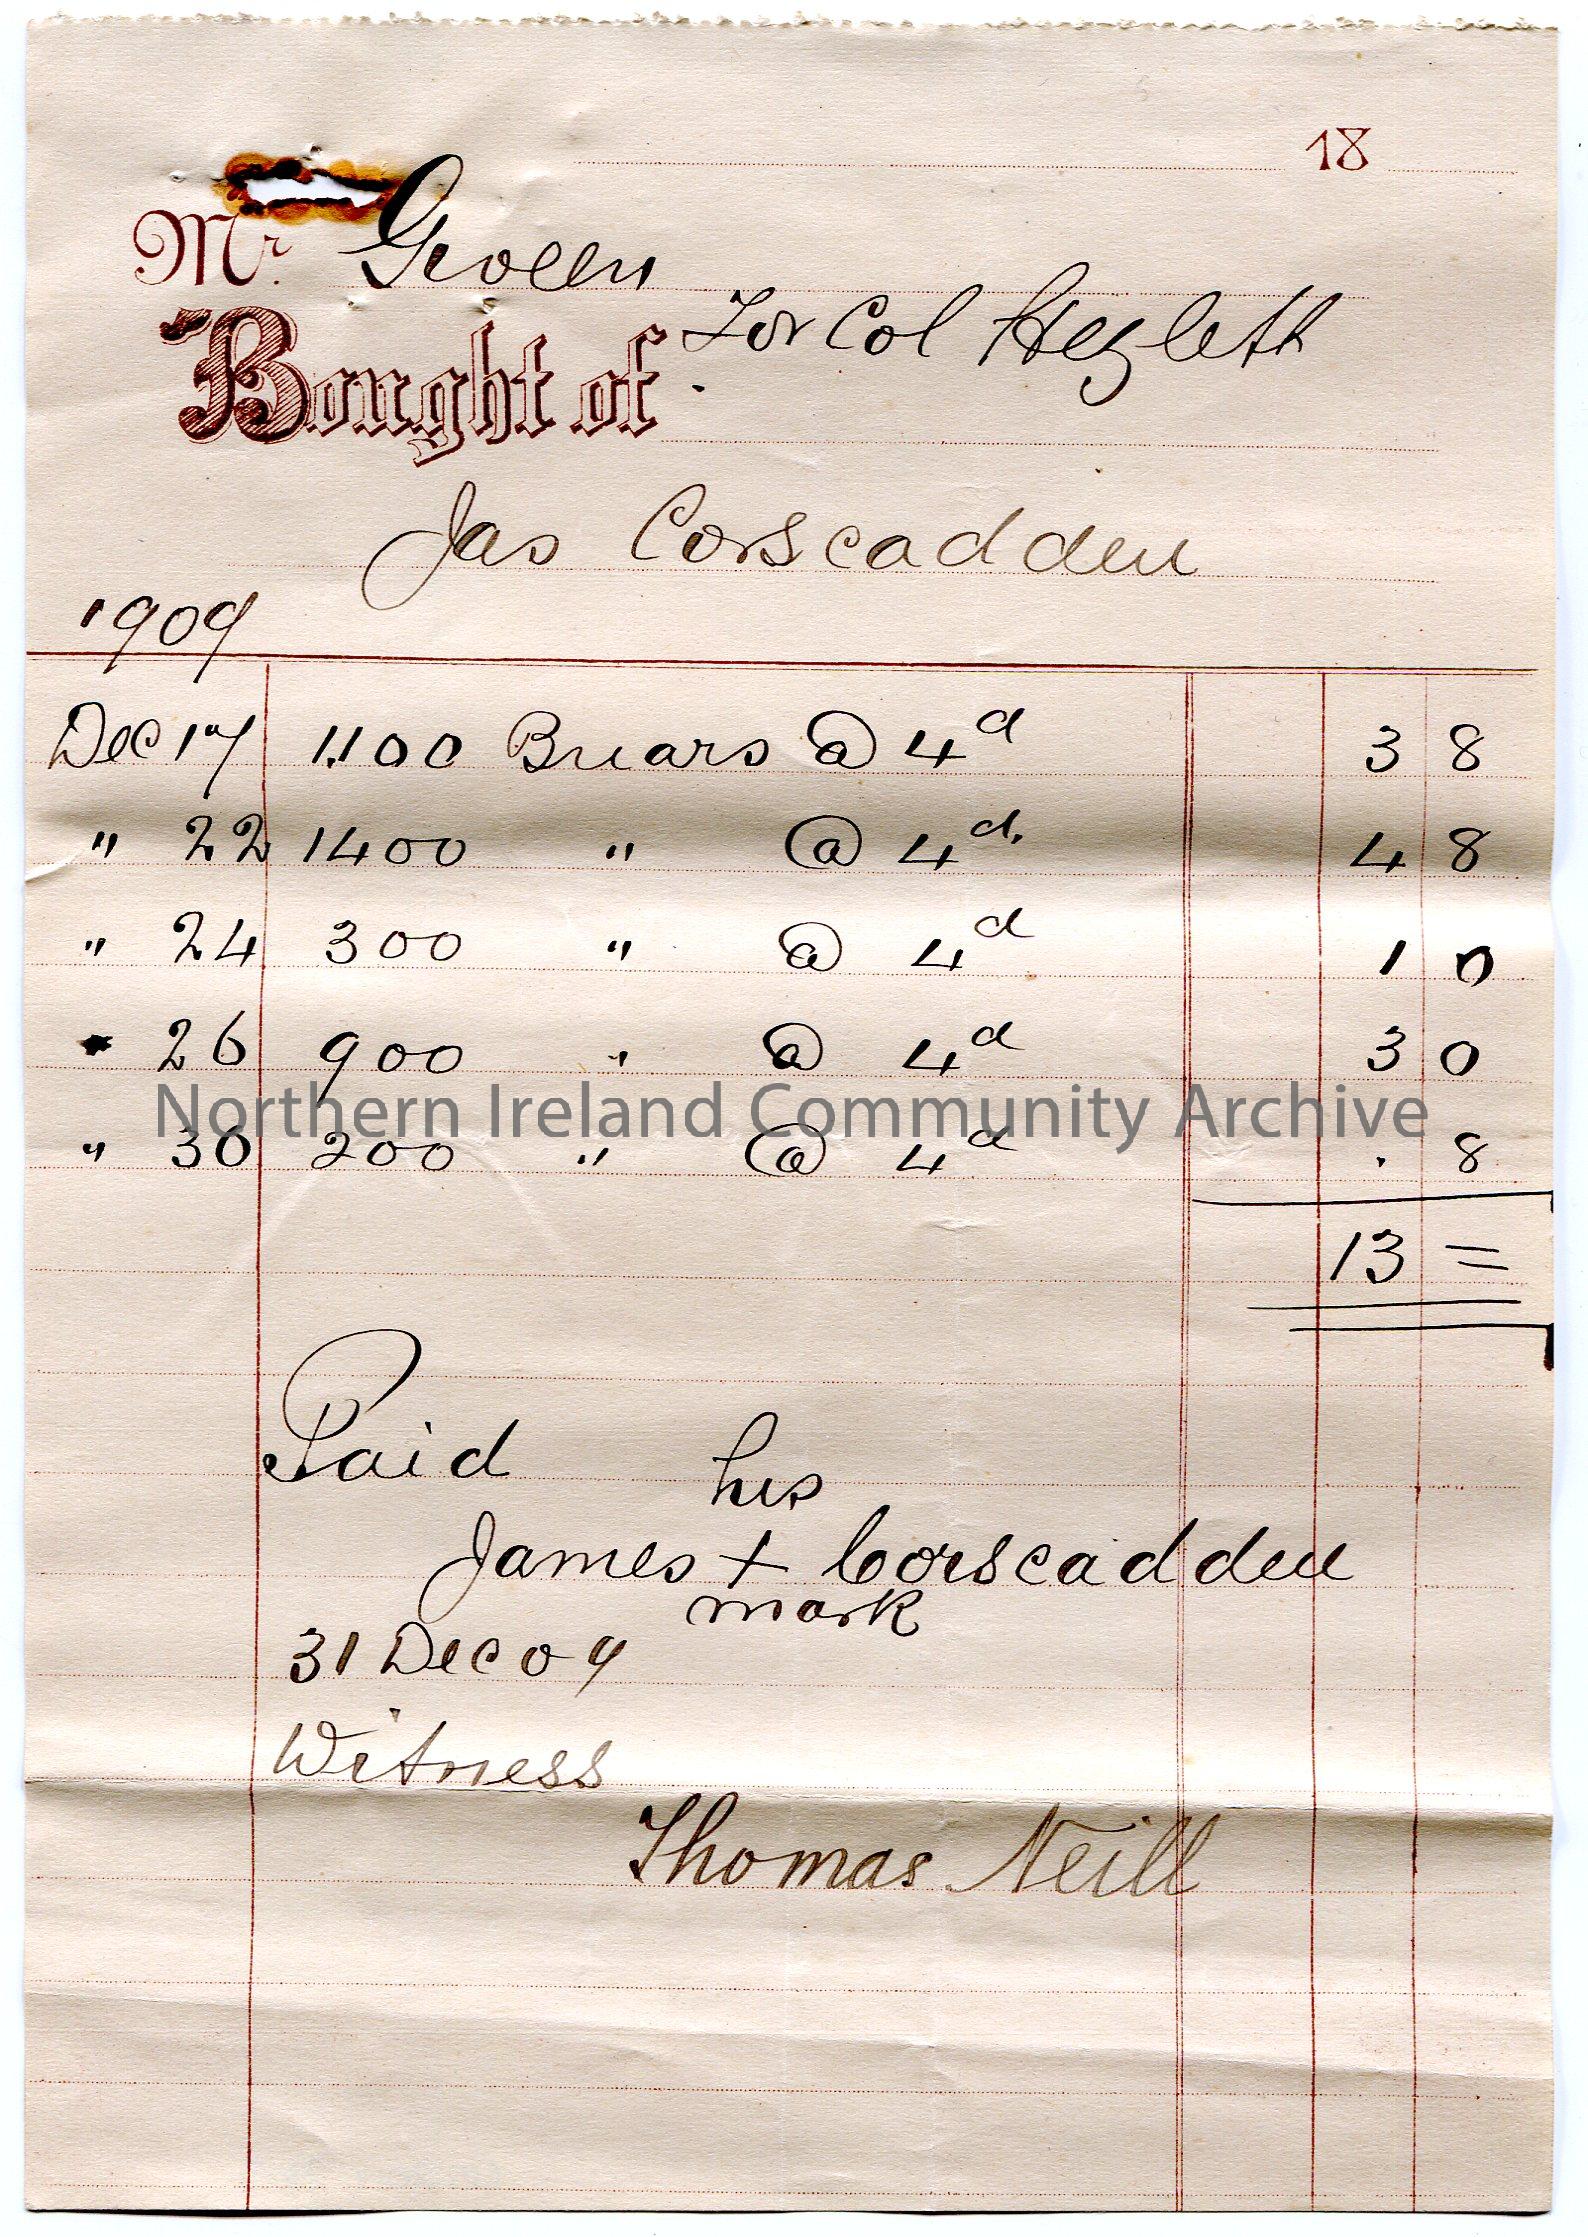 18
Mr. Given
For Col Hezlett
Bought of
Jas Corscadden
1909
Dec 17 1100 Briars @ 4d 3 8
" 22 1400 " @ 4d. 4 8
" 24 300 " @ 4d 1 0
" 26 900 " @ 4d 3 0
Northern Ireland Community Archive
" 30 200 " @ 4d . 8
13 =
Paid his
James + Corscadden
mark
31 Dec 09
Witness
Thomas Neill